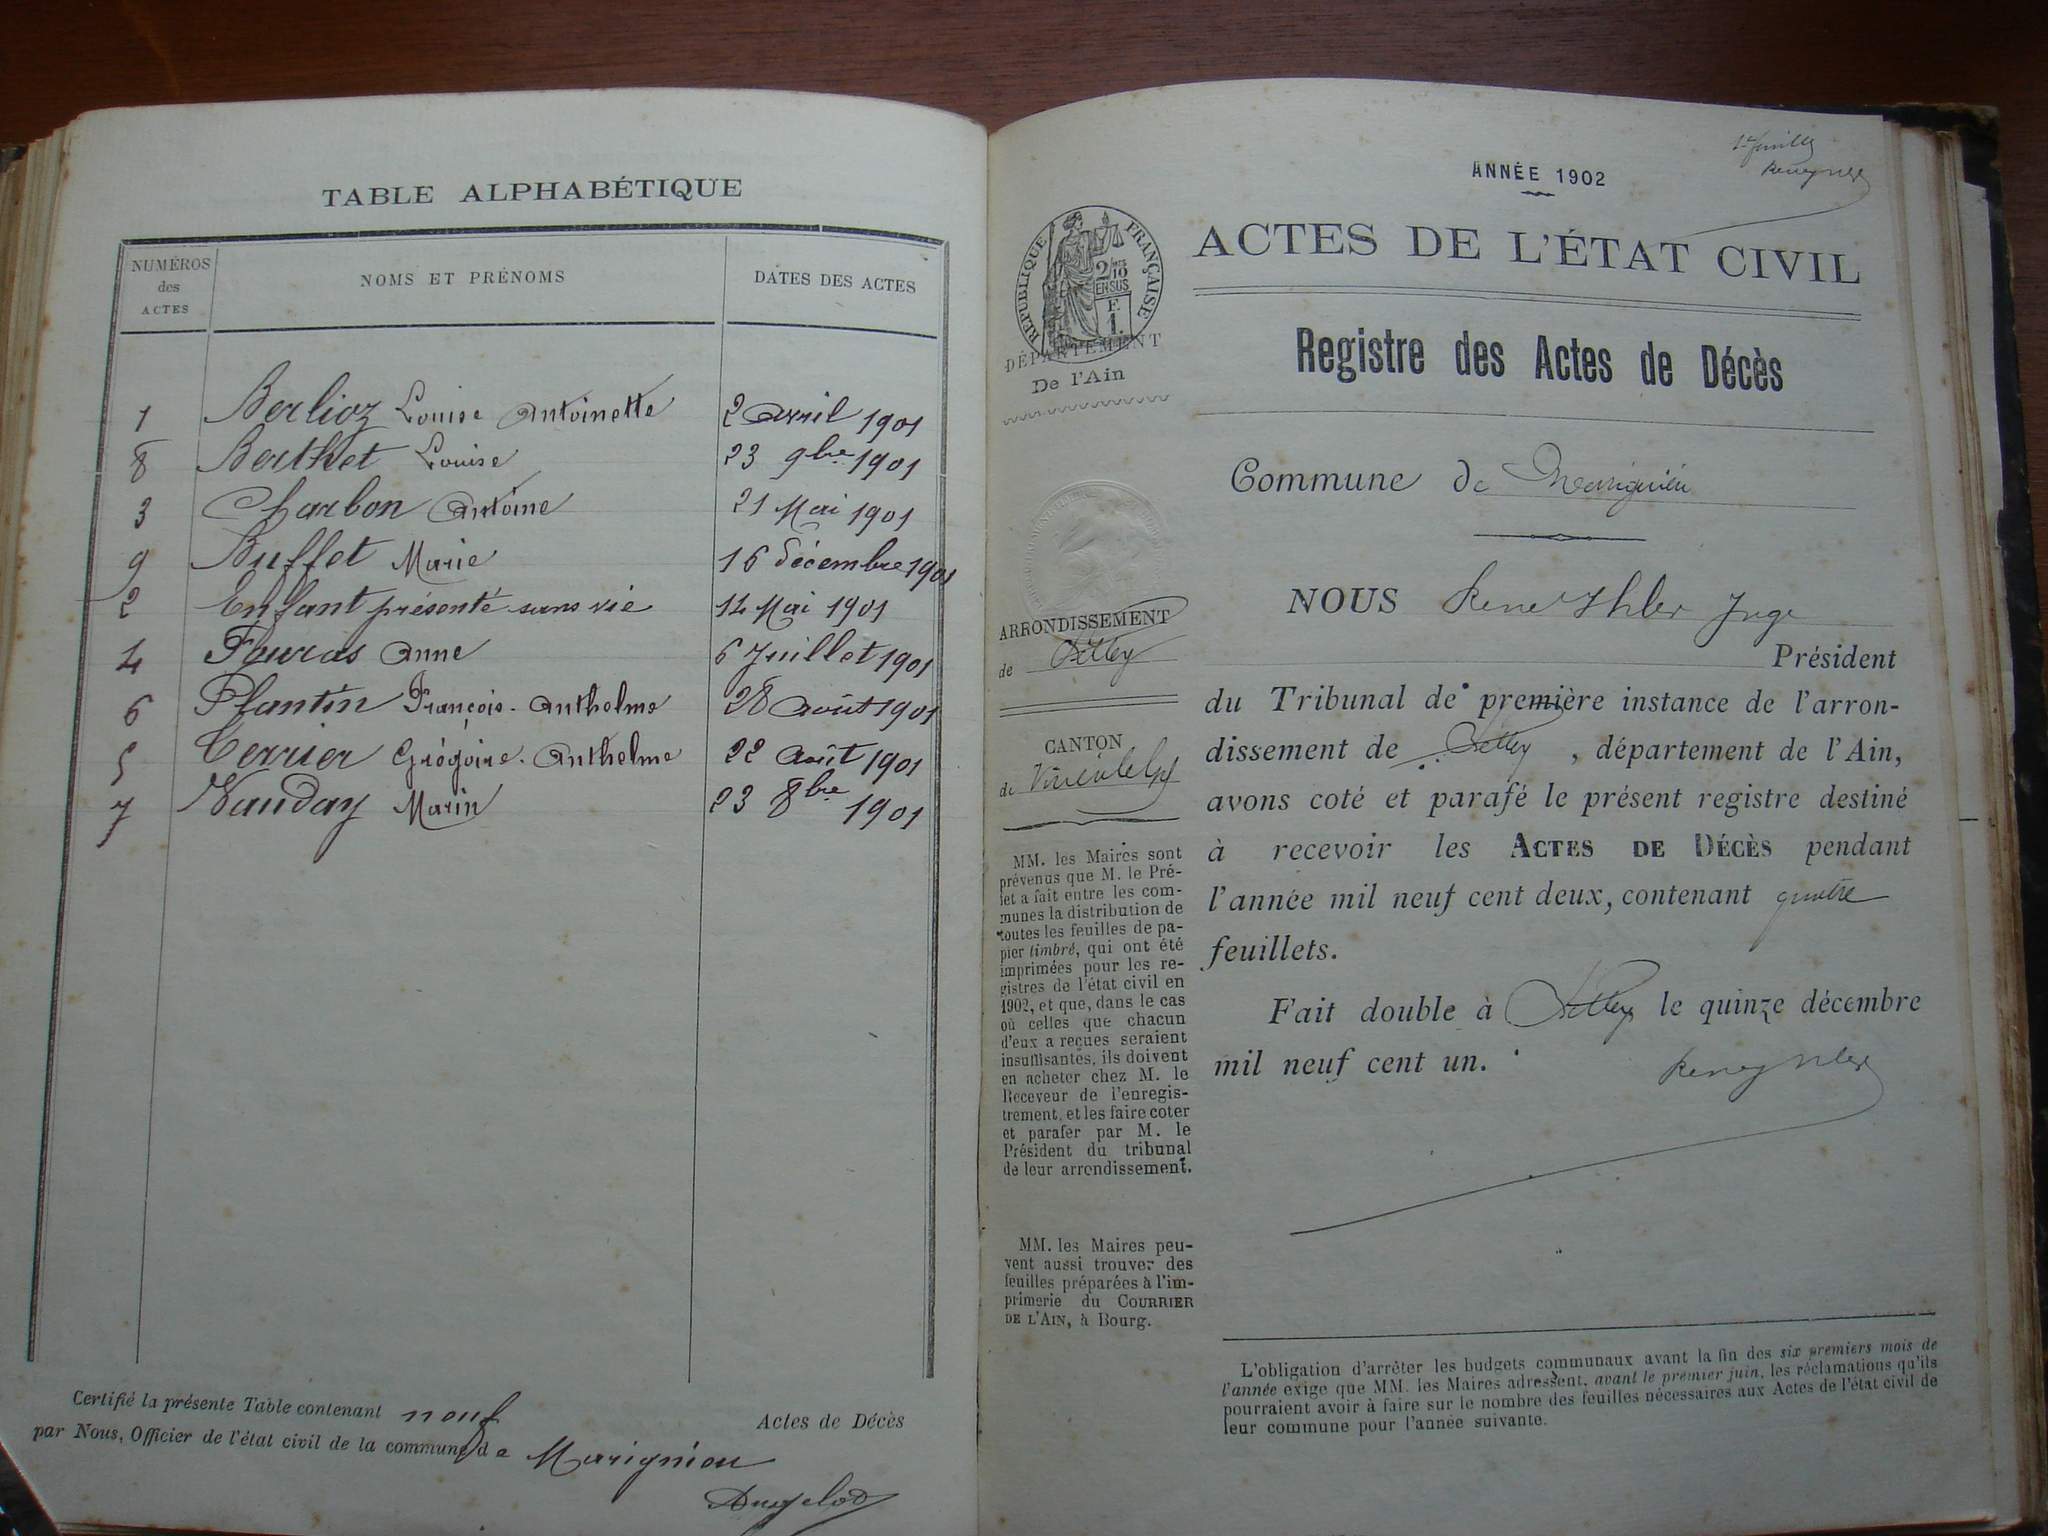 TABLE ALPHABÉTIQUE
NUMÉROS des ACTES NOMS ET PRÉNOMS DATES DES ACTES
1 Berlioz Louise Antoinette 2 avril 1901
8 Berthet Louise 23 9bre 1901
3 Charbon Antoine 21 Mai 1901
9 Buffet Marie 16 décembre 1901
2 Enfant présenté sans vie 14 Mai 1901
4 Anne 6 Juillet 1901
6 Plantin François-Anthelme 28 août 1901
5 Terrier Grégoire-Anthelme 22 août 1901
7 Vauday Marin 23 8bre 1901
Certifié la présente Table contenant neuf Actes de Décès
par Nous, Officier de l'état civil de la commune de Marignieu
ANNÉE 1902
ACTES DE L'ÉTAT CIVIL
RÉPUBLIQUE FRANÇAISE
2/10 EN SUS
F. 1.
DÉPARTEMENT
De l'Ain
Registre des Actes de Décès
Commune de Marignieu
NOUS René Ihler Juge
Président
du Tribunal de première instance de l'arron-
dissement de Belley, département de l'Ain,
avons coté et parafé le présent registre destiné
à recevoir les ACTES DE DÉCÈS pendant
l'année mil neuf cent deux, contenant quatre
feuillets.
Fait double à Belley le quinze décembre
mil neuf cent un.
ARRONDISSEMENT
de Belley
CANTON
de Virieu le Gd
MM. les Maires sont
prévenus que M. le Pré-
fet a fait entre les com-
munes la distribution de
toutes les feuilles de pa-
pier timbré, qui ont été
imprimées pour les re-
gistres de l'état civil en
1902, et que, dans le cas
où celles que chacun
d'eux a reçues seraient
insuffisantes, ils doivent
en acheter chez M. le
Receveur de l'enregis-
trement, et les faire coter
et parafer par M. le
Président du tribunal
de leur arrondissement.
MM. les Maires peu-
vent aussi trouver des
feuilles préparées à l'im-
primerie du COURRIER
DE L'AIN, à Bourg.
L'obligation d'arrêter les budgets communaux avant la fin des six premiers mois de
l'année exige que MM. les Maires adressent, avant le premier juin, les réclamations qu'ils
pourraient avoir à faire sur le nombre des feuilles nécessaires aux Actes de l'état civil de
leur commune pour l'année suivante.